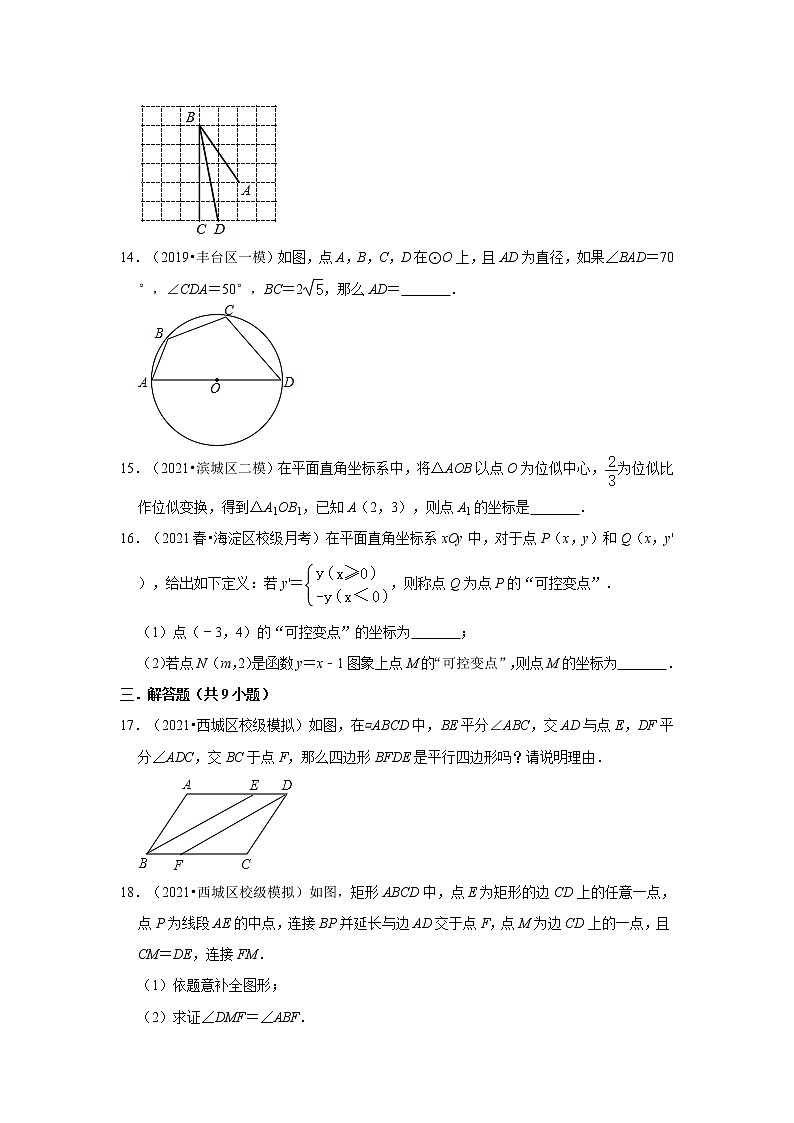 B
A
C D
14.（2019•丰台区一模）如图，点A，B，C，D在⊙O上，且AD为直径，如果∠BAD＝70
°，∠CDA＝50°，BC＝2√5，那么AD＝_______．
C
B
A O D
15.（2021•滨城区二模）在平面直角坐标系中，将△AOB以点O为位似中心，2/3为位似比
作位似变换，得到△A₁OB₁，已知A（2，3），则点A₁的坐标是_______．
16.（2021春•海淀区校级月考）在平面直角坐标系xOy中，对于点P（x，y）和Q（x，y'
），给出如下定义：若y'＝{y(x≥0) -y(x＜0)，则称点Q为点P的“可控变点”．
（1）点（﹣3，4）的“可控变点”的坐标为_______；
（2）若点N（m，2）是函数y＝x﹣1图象上点M的“可控变点”，则点M的坐标为_______．
三．解答题（共9小题）
17.（2021•西城区校级模拟）如图，在▱ABCD中，BE平分∠ABC，交AD与点E，DF平
分∠ADC，交BC于点F，那么四边形BFDE是平行四边形吗？请说明理由．
A E D
B F C
18.（2021•西城区校级模拟）如图，矩形ABCD中，点E为矩形的边CD上的任意一点，
点P为线段AE的中点，连接BP并延长与边AD交于点F，点M为边CD上的一点，且
CM＝DE，连接FM．
（1）依题意补全图形；
（2）求证∠DMF＝∠ABF．